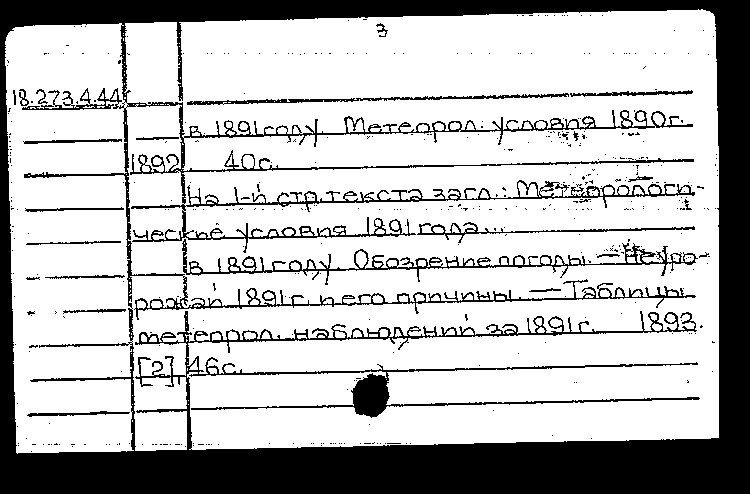 3
18.273.4.44
в 1891 году. Метеорол. условия 1890 г.
1892. 40 с.
На 1-й стр. текста загл.: Метеорологи-
ческие условия 1891 года...
в 1891 году. Обозрение погоды. — Неуро-
рожай 1891 г. и его причины. — Таблицы
метеорол. наблюдений за 1891 г. 1893.
[2], 46 с.